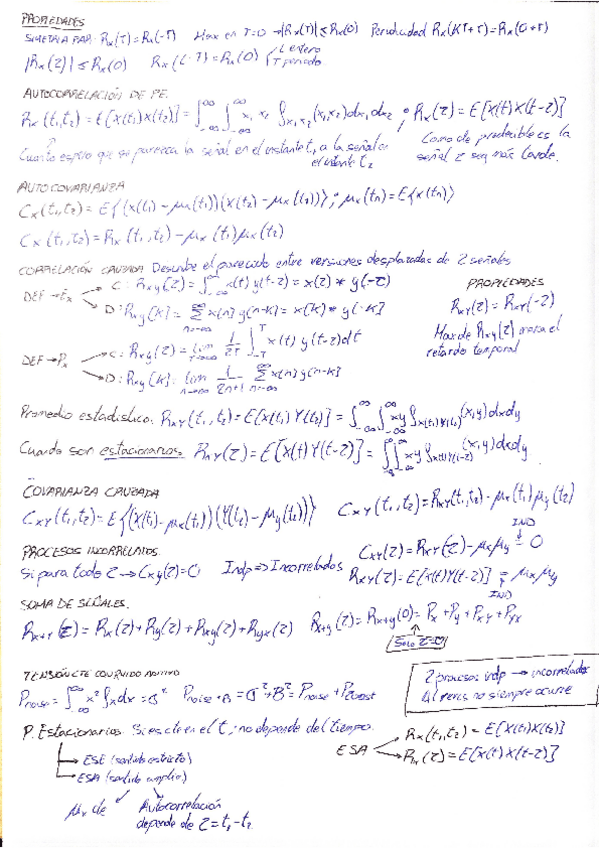 PROPIEDADES
SIMETRIA PAR: Rx(τ)=Rx(-τ) Max en τ=0 →|Rx(τ)|≤Rx(0) Periodicidad Rx(KT+τ)=Rx(0+τ)
|Rx(τ)|≤Rx(0) Rx(L·T)=Rx(0) {L entero
T periodo
AUTOCORRELACIÓN DE PE.
Rx(t1,t2)=E[X(t1)X(t2)]=∫∫ x1 x2 fx1x2(x1,x2)dx1dx2 ; Rx(τ)=E[X(t)X(t-τ)]
Cuanto espero que se parezca la señal en el instante t1 a la señal en
el instante t2
Como de predecible es la
señal τ seg más tarde.
AUTOCOVARIANZA
Cx(t1,t2)=E{(x(t1)-μx(t1))(x(t2)-μx(t2))}; μx(tn)=E{x(tn)}
Cx(t1,t2)=Rx(t1,t2)-μx(t1)μx(t2)
CORRELACIÓN CRUZADA Describe el parecido entre versiones desplazadas de 2 señales
DEF→Ex → C: Rxy(τ)=∫x(t)y(t-τ)=x(τ)*y(-τ)
→ D: Rxy[K]=Σx[n]y[n-K]=x[K]*y[-K]
PROPIEDADES
Rxy(τ)=Rxy(-τ)
Max de Rxy(τ) para el
retardo temporal
DEF→Px → C: Rxy(τ)=lim 1/2T ∫x(t)y(t-τ)dt
→ D: Rxy[K]=lim 1/2n+1 Σx[n]y[n-K]
Promedio estadístico: Rxy(t1,t2)=E[X(t1)Y(t2)]=∫∫xy fx(t1)y(t2)(x,y)dxdy
Cuando son estacionarios: Rxy(τ)=E[X(t)Y(t-τ)]=∫∫xy fx(t)y(t-τ)(x,y)dxdy
COVARIANZA CRUZADA
Cxy(t1,t2)=E{(X(t1)-μx(t1))(Y(t2)-μy(t2))} Cxy(t1,t2)=Rxy(t1,t2)-μx(t1)μy(t2)
PROCESOS INCORRELADOS.
Si para todo τ→Cxy(τ)=0 Indp⇒Incorrelados
Cxy(τ)=Rxy(τ)-μxμy = 0
IND
Rxy(τ)=E[X(t)Y(t-τ)] = μxμy
IND
SUMA DE SEÑALES.
Rx+y(τ)=Rx(τ)+Ry(τ)+Rxy(τ)+Ryx(τ) Rx+y(τ)=Rx+y(0)=Px+Py+Pxy+Pyx
Solo τ=0
TENSIÓN CTE CON RUIDO ADITIVO
Pnoise=∫x² fx dx=σ² Pnoise+B=σ²+B²=Pnoise+Pconst
2 procesos indp → incorrelados
Al revés no siempre ocurre
P. Estacionarios. Si es cte en el t; no depende del tiempo.
→ ESE (sentido estricto)
→ ESA (sentido amplio)
μx cte Autocorrelación
depende de τ=t1-t2
ESA → Rx(t1,t2)=E[X(t1)X(t2)]
→ Rx(τ)=E[X(t)X(t-τ)]